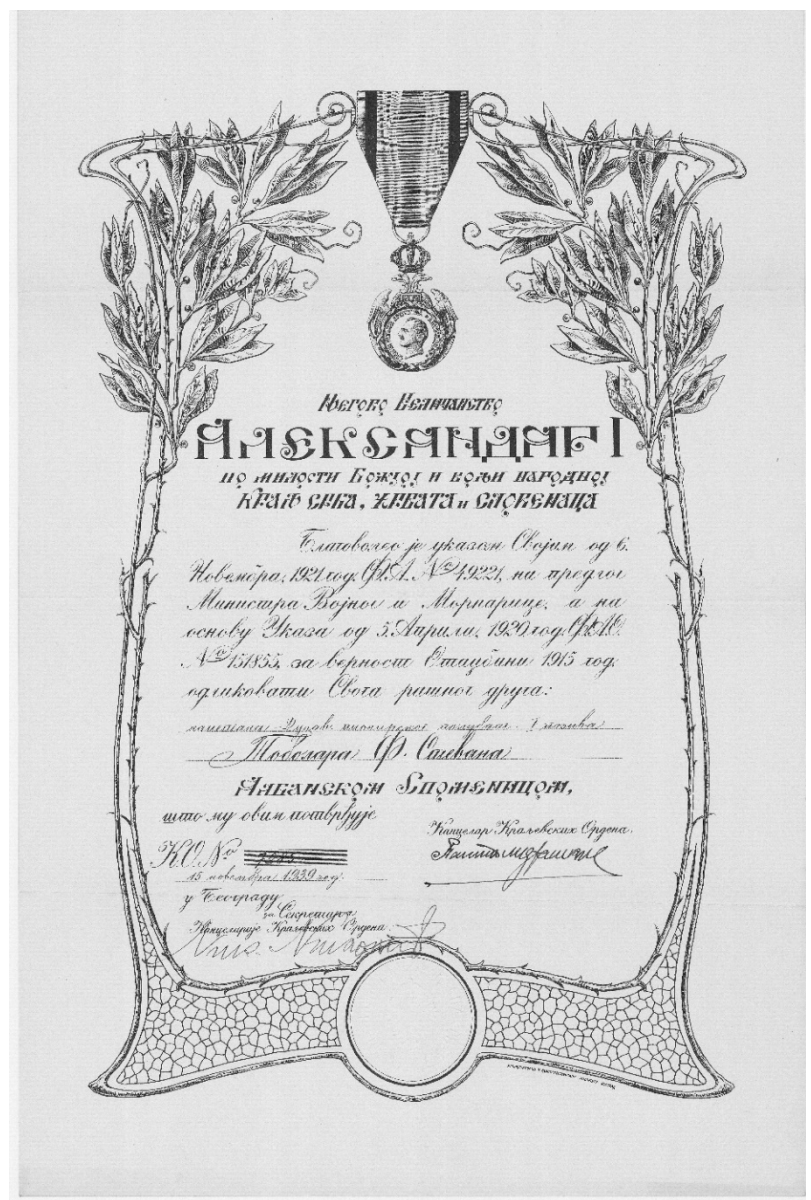 Његово Величанство
АЛЕКСАНДАР I
по милости Божјој и вољи народној
Краљ Срба, Хрвата и Словенаца
Благоволео је указом Својим од 6.
Новембра, 1921 год. Ф.А. № 49221, на предлог
Министра Војног и Морнарице, а на
основу Указа од 5. Априла, 1920 год. Ф.А.О.
№ 151855, за верност Отаџбини 1915 год.
одликовати Свога ратног друга:
капетана Дунав. пионирског I позива
Тоболара Ф. Стевана
Албанском Споменицом,
што му овим потврђује
Канцелар Краљевских Ордена.
К.О. №
15 новембра 1939 год.
у Београду
за Секретара
Канцеларије Краљевских Ордена